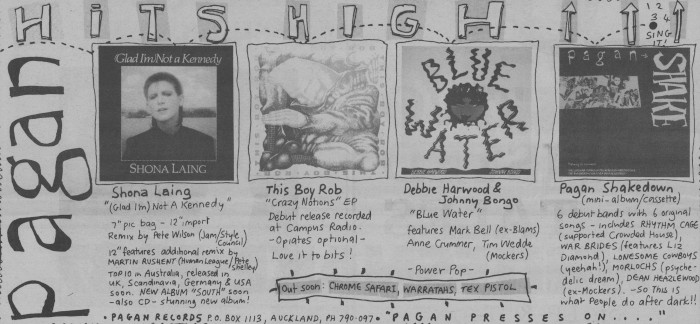 HITS HIGH
1 2 3 4 SING IT!
pagan
(Glad I'm) Not a Kennedy
SHONA LAING
BLUE WATER
DEBBIE HARWOOD
JOHNNY BONGO
pagan
SHAKE
Shona Laing
"(Glad I'm) Not A Kennedy"
7" pic bag - 12" import
Remix by Pete Wilson (Jam/Style Council)
12" features additional remix by
MARTIN RUSHENT (Human League/Pete Shelley)
TOP 10 in Australia, released in
UK, Scandinavia, Germany & USA
soon. NEW ALBUM "SOUTH" soon
-also CD- stunning new album!
This Boy Rob
"Crazy Notions" EP
Debut release recorded
at Campus Radio.
-Opiates optional-
Love it to bits!
Debbie Harwood &
Johnny Bongo
"Blue Water"
features Mark Bell (ex-Blams)
Anne Crummer, Tim Wedde
(Mockers)
-Power Pop-
Out soon: CHROME SAFARI, WARRATAHS, TEX PISTOL
Pagan Shakedown
(mini-album/cassette)
6 debut bands with 6 original
songs - includes RHYTHM CAGE
(supported Crowded House),
WAR BRIDES (features Liz
Diamond), LONESOME COWBOYS
(yeehah!), MORLOCHS (psyche-
delic dream), DEAN HEAZLEWOOD
(ex-Mockers). -SO This is
what People do after dark!!
• PAGAN RECORDS P.O. BOX 1113, AUCKLAND, PH 790-097 • "PAGAN PRESSES ON...."